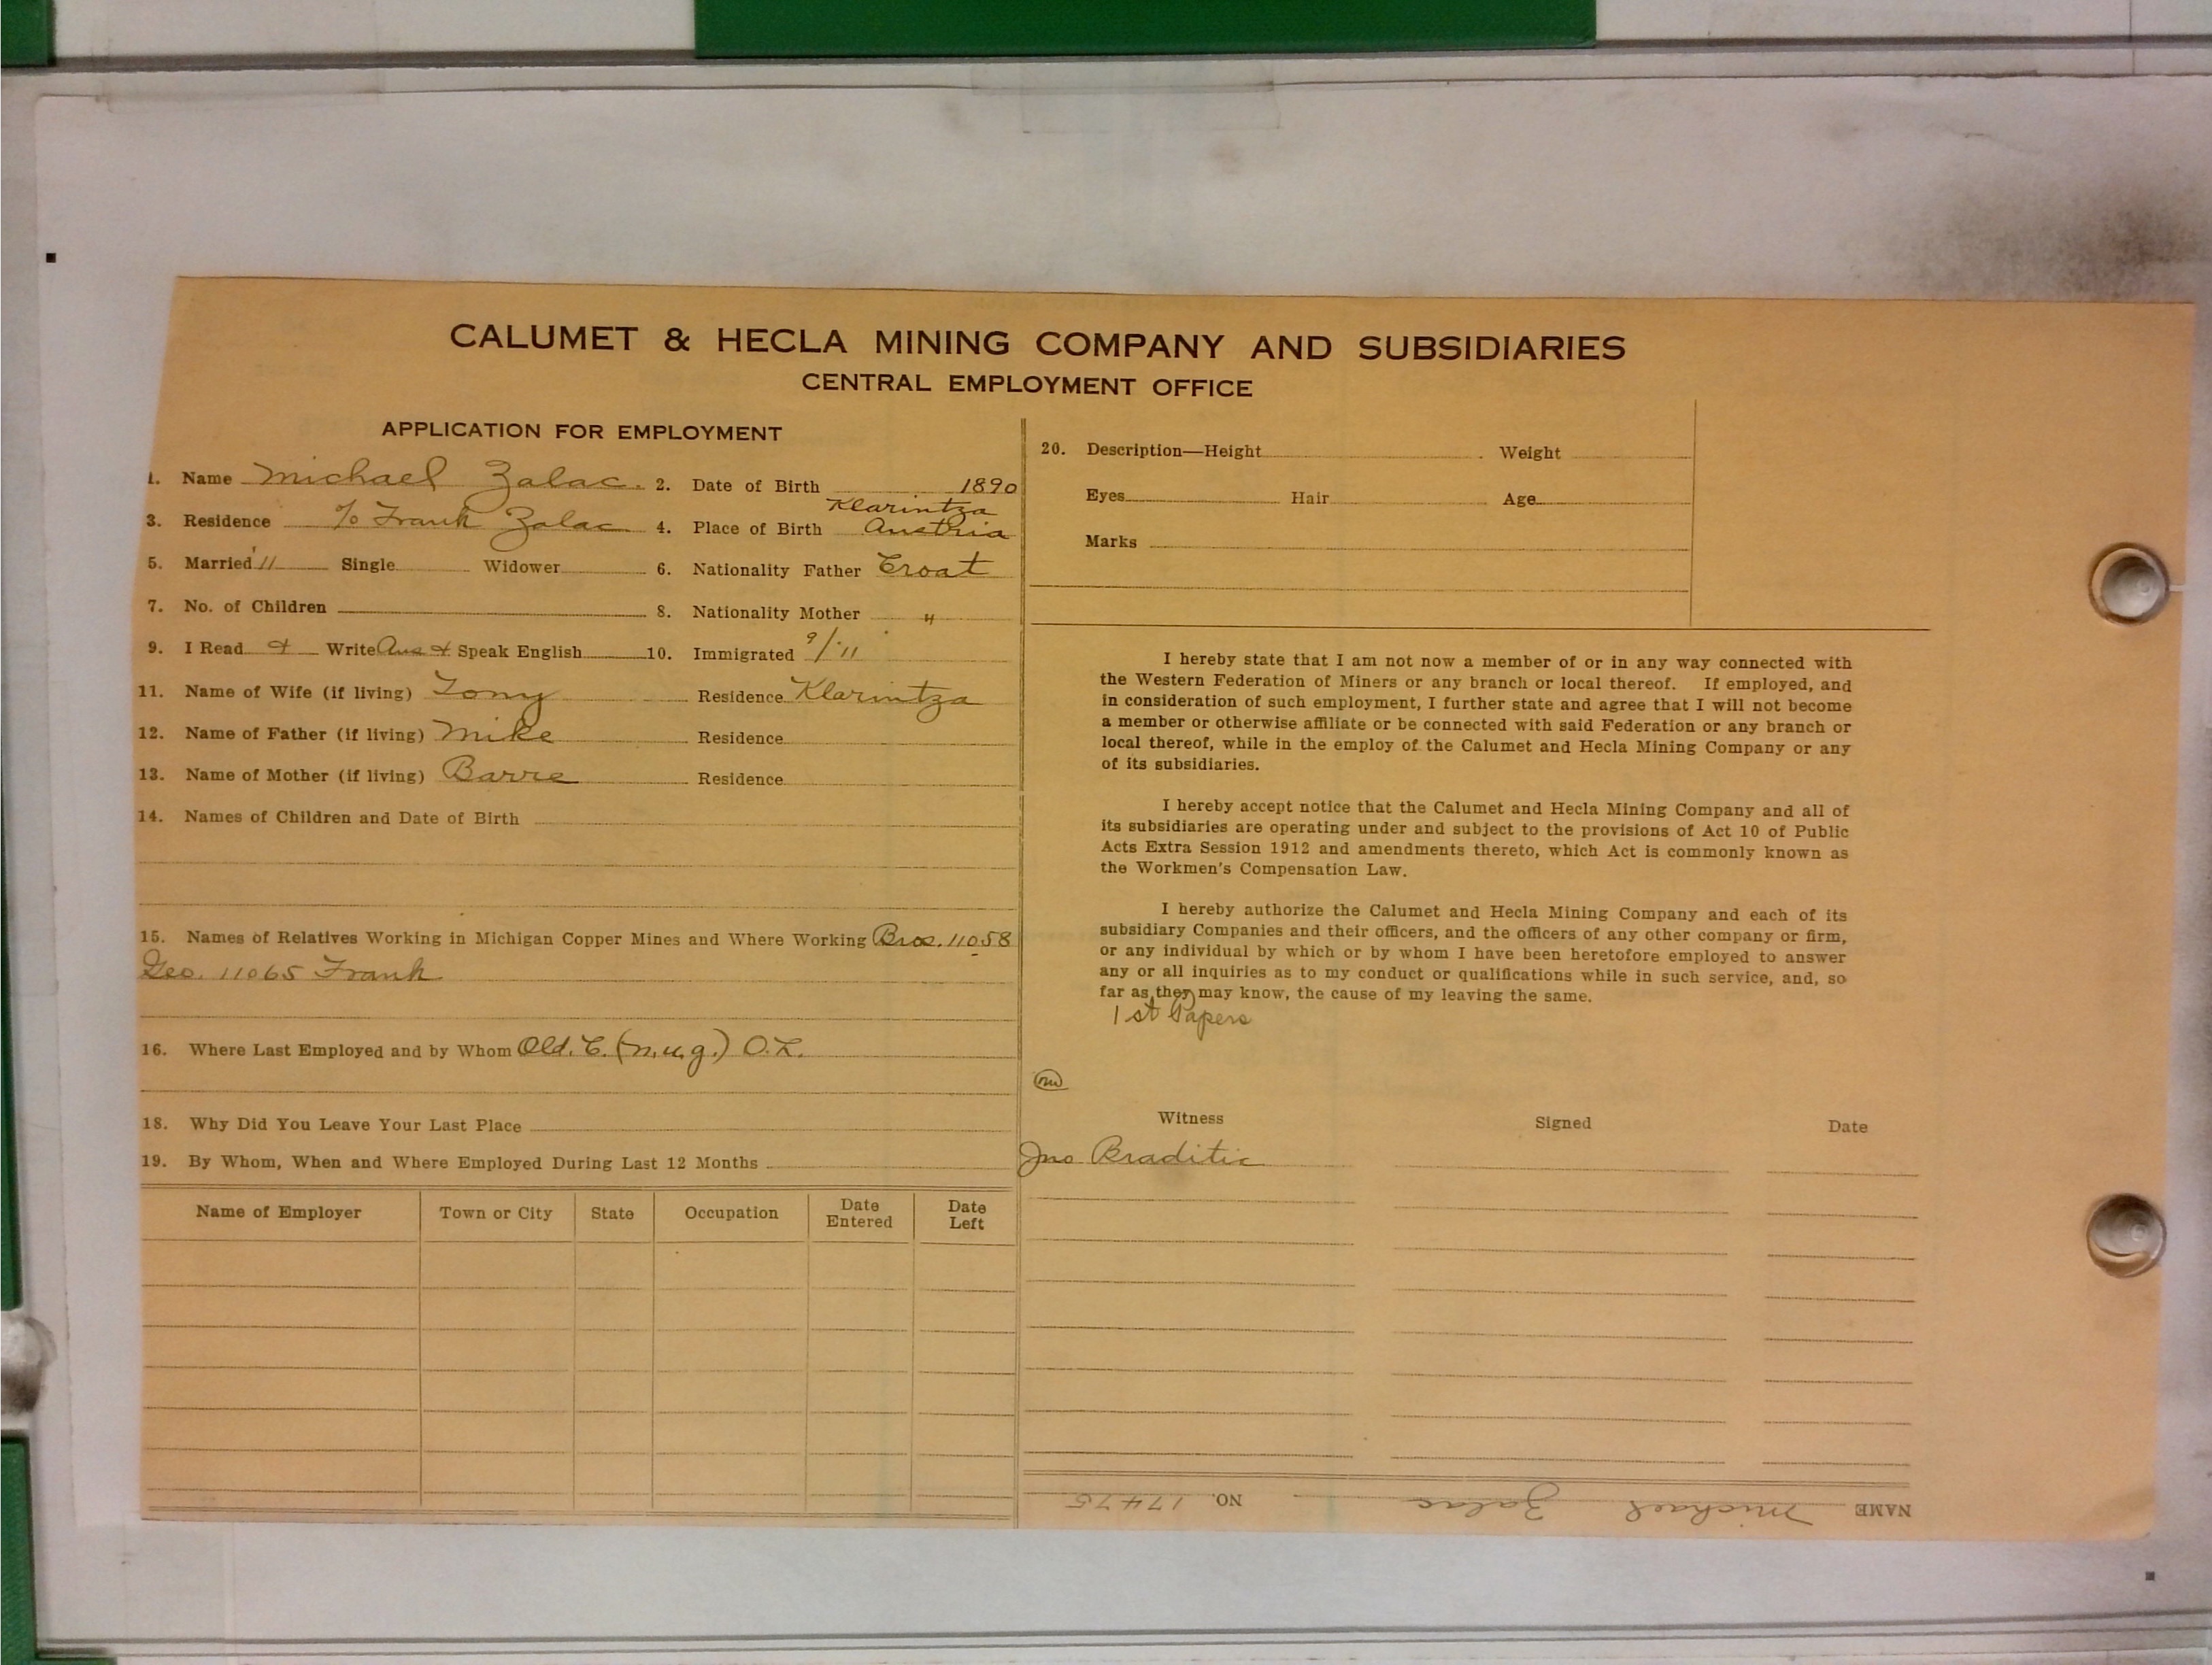 CALUMET & HECLA MINING COMPANY AND SUBSIDIARIES
CENTRAL EMPLOYMENT OFFICE
APPLICATION FOR EMPLOYMENT
1. Name Michael Zalac. 2. Date of Birth 1890
3. Residence c/o Frank Zalac 4. Place of Birth Klarintza Austria
5. Married '11 Single Widower 6. Nationality Father Croat
7. No. of Children 8. Nationality Mother "
9. I Read & Write Aus & Speak English 10. Immigrated 9/'11
11. Name of Wife (if living) Tony Residence Klarintza
12. Name of Father (if living) Mike Residence
13. Name of Mother (if living) Barre Residence
14. Names of Children and Date of Birth
15. Names of Relatives Working in Michigan Copper Mines and Where Working Bros. 11058
Geo. 11065 Frank
16. Where Last Employed and by Whom Old. C. (n.u.g.) O.K.
18. Why Did You Leave Your Last Place
19. By Whom, When and Where Employed During Last 12 Months
Name of Employer Town or City State Occupation Date Entered Date Left
20. Description—Height Weight
Eyes Hair Age
Marks
I hereby state that I am not now a member of or in any way connected with
the Western Federation of Miners or any branch or local thereof. If employed, and
in consideration of such employment, I further state and agree that I will not become
a member or otherwise affiliate or be connected with said Federation or any branch or
local thereof, while in the employ of the Calumet and Hecla Mining Company or any
of its subsidiaries.
I hereby accept notice that the Calumet and Hecla Mining Company and all of
its subsidiaries are operating under and subject to the provisions of Act 10 of Public
Acts Extra Session 1912 and amendments thereto, which Act is commonly known as
the Workmen's Compensation Law.
I hereby authorize the Calumet and Hecla Mining Company and each of its
subsidiary Companies and their officers, and the officers of any other company or firm,
or any individual by which or by whom I have been heretofore employed to answer
any or all inquiries as to my conduct or qualifications while in such service, and, so
far as they may know, the cause of my leaving the same.
1st Papers
Witness Signed Date
Jno Braditic
NAME Michael Zalac NO. 17475